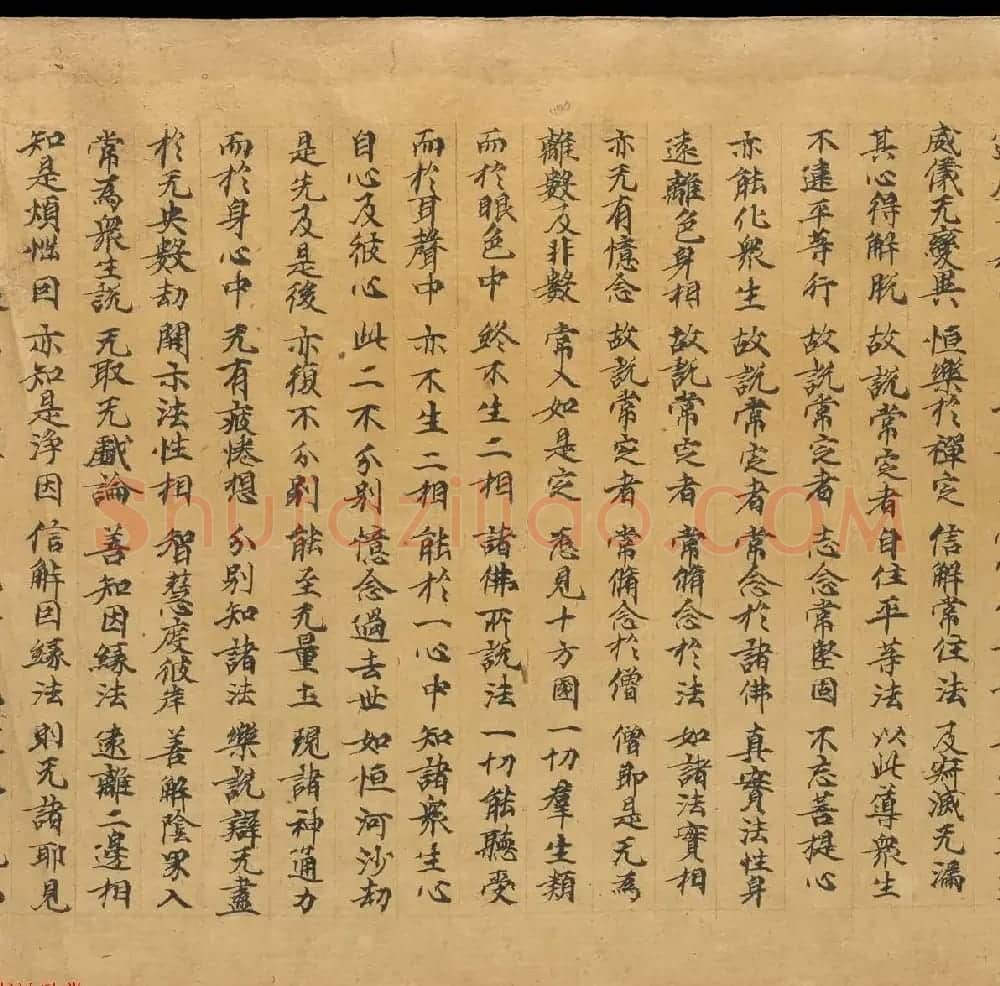 威儀无變異 恒樂於禪定 信解常住法 及寂滅无漏
其心得解脫 故說常定者 自住平等法 以此導衆生
不違平等行 故說常定者 志念常堅固 不忘菩提心
亦能化衆生 故說常定者 常念於諸佛 真實法性身
遠離色身相 故說常定者 常脩念於法 如諸法實相
亦无有憶念 故說常定者 常脩念於僧 僧即是无為
離數及非數 常入如是定 悉見十方國 一切羣生類
而於眼色中 終不生二相 諸佛所說法 一切能聽受
而於耳聲中 亦不生二相 能於一心中 知諸衆生心
自心及彼心 此二不分別 憶念過去世 如恒河沙劫
是先及是後 亦復不分別 能至无量土 現諸神通力
而於身心中 无有疲惓想 分別知諸法 樂說辯无盡
於无央數劫 開示法性相 智慧度彼岸 善解陰界入
常為衆生說 无取无戲論 善知因緣法 遠離二邊相
知是煩性因 亦知是淨因 信解因緣法 則无諸耶見
Shufaziliao.COM